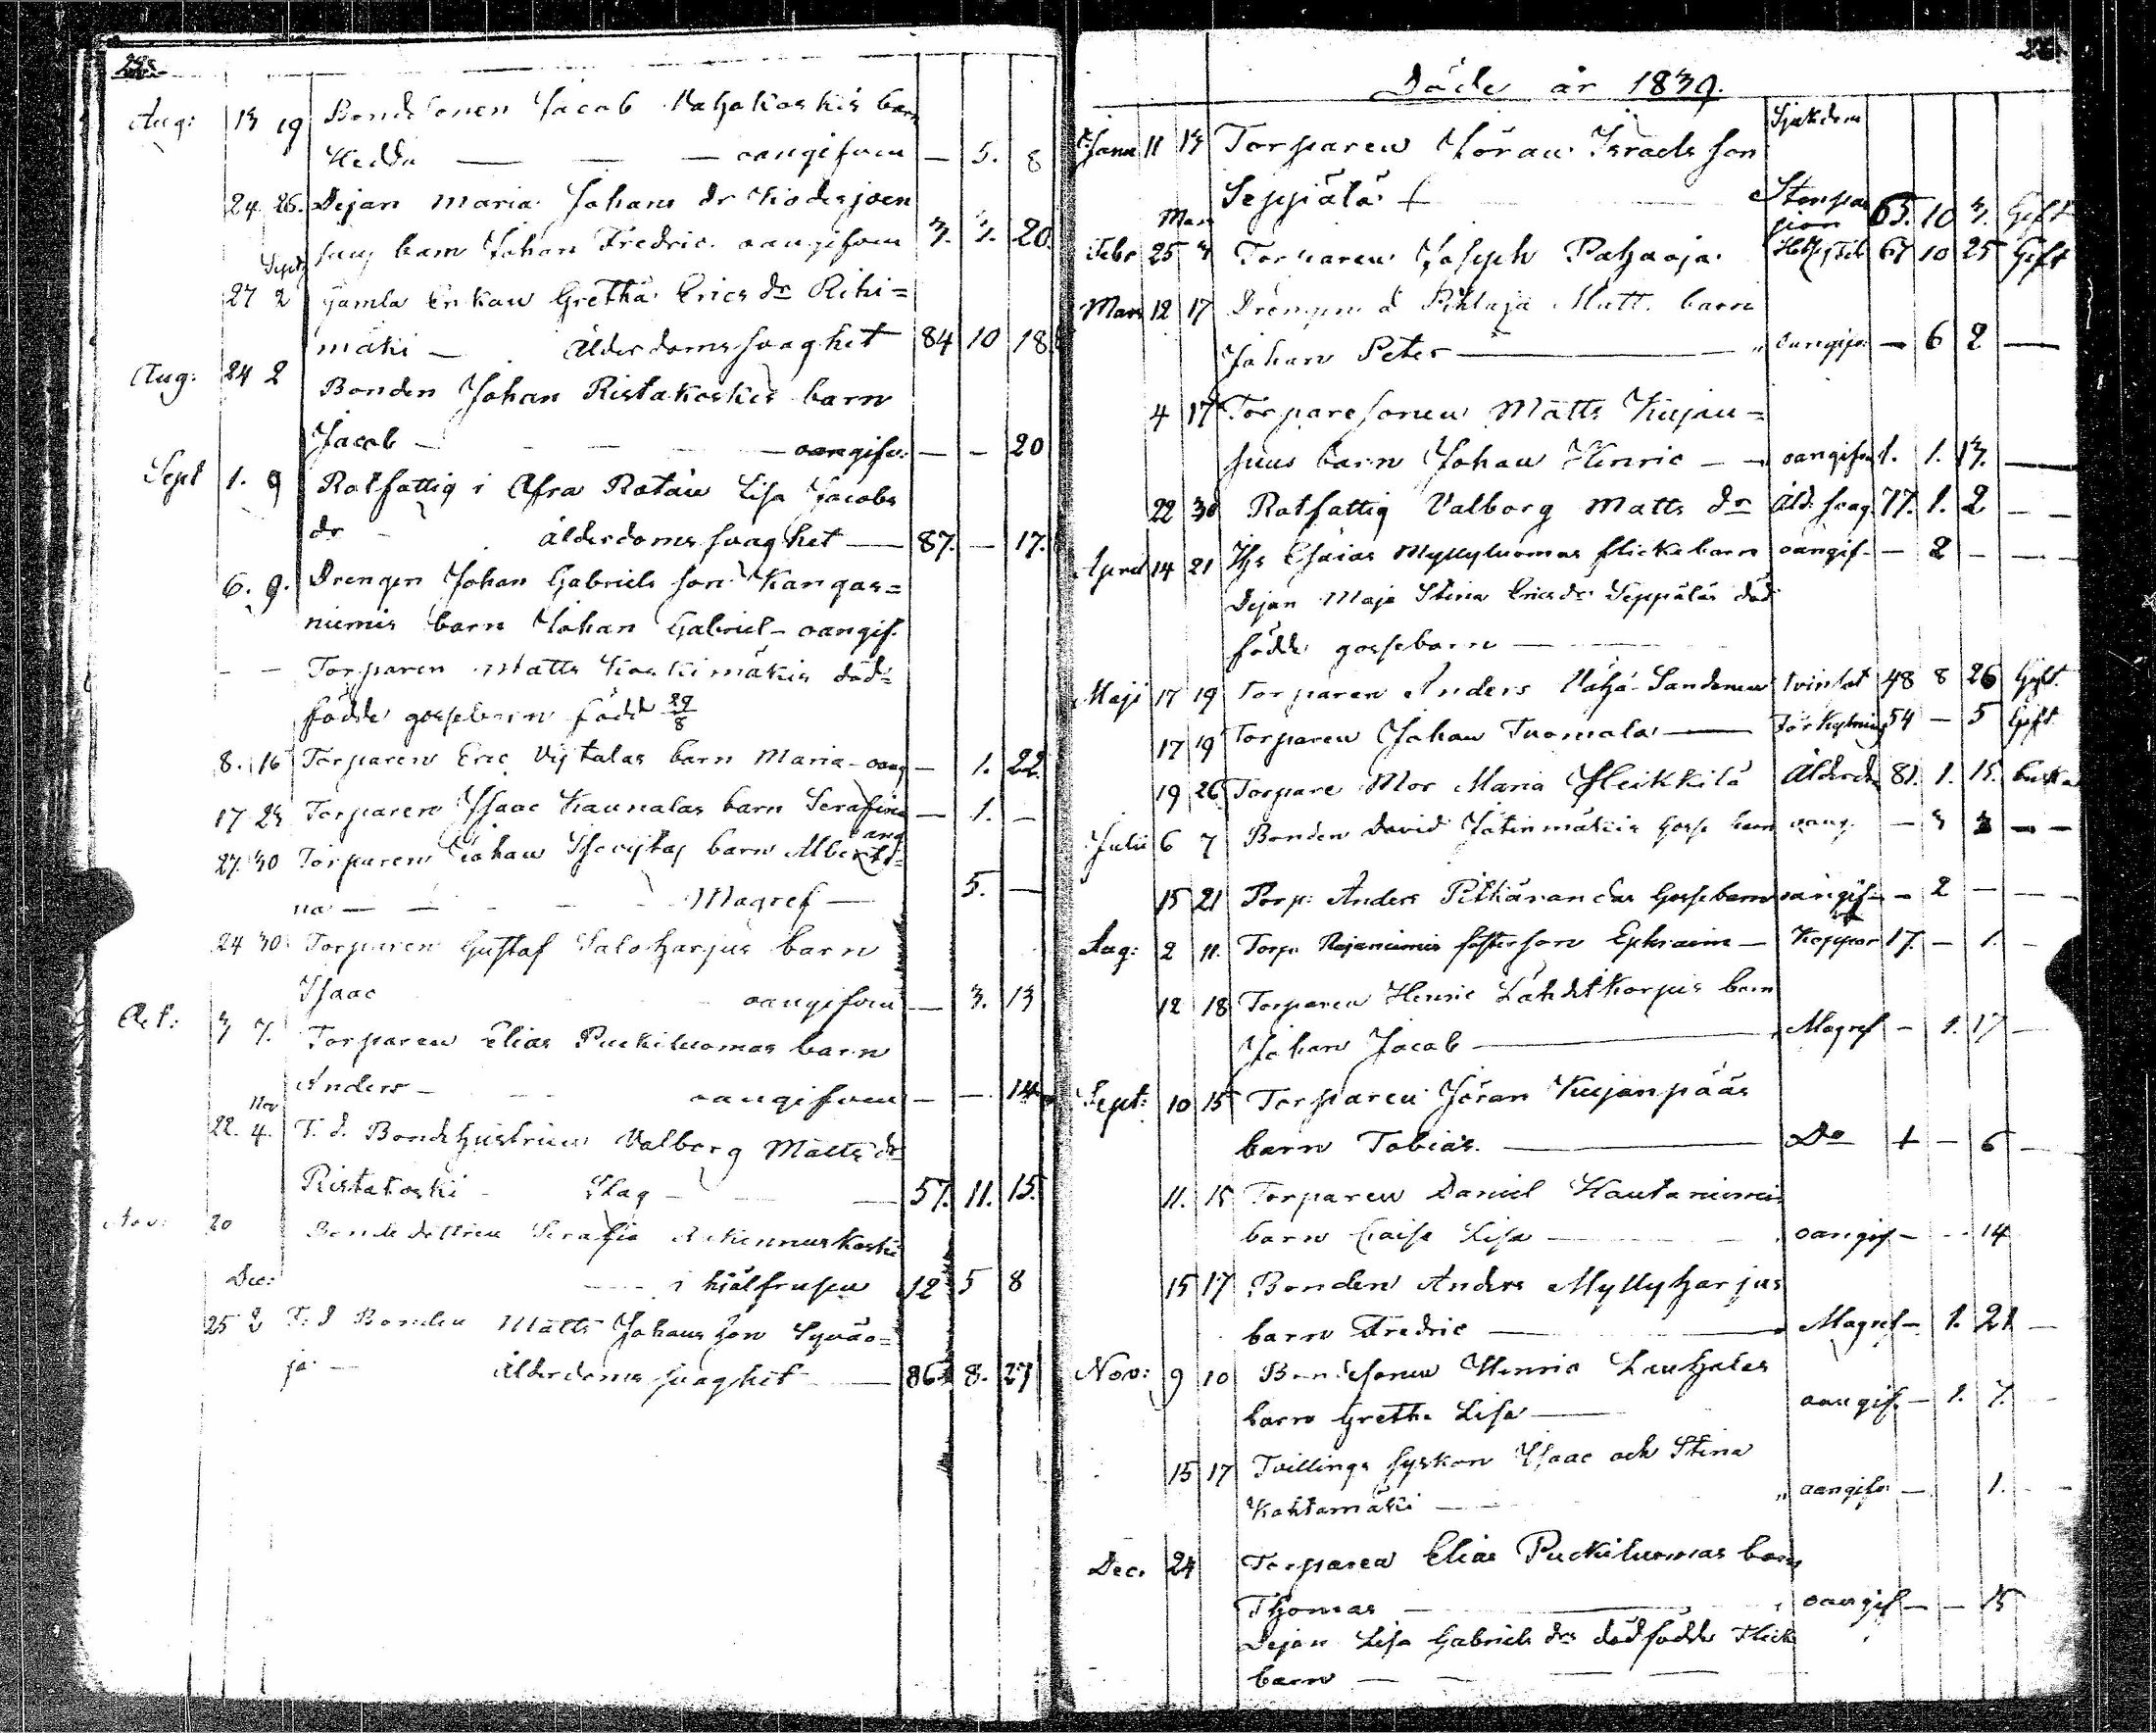 Aug: 13 19 Bondesonen Jacob Vahakoskis barn
Hedda — — — oangifven — 5. 8
24 26. Dejan Maria Johans dr
barn Johan Fredric oangifven 3. 7. 20.
Sept
27 2 gamla Enkan Gretha Erics dr Rihi=
mäki — Ålderdomssvaghet 84 10 18
Aug: 24 2 Bonden Johan Ristakoskis barn
Jacob — — — oangifv: — — 20
Sept 1. 9 Rotfattig i Lisa Jacobs
dr - ålderdomssvaghet — 87. — 17.
6. 9. Drengen Johan Gabriels son Kangas=
niemis barn Johan Gabriel - oangif.
- - Torparen Matts Koskimäkis död=
födde gossebarn född 29/8
8. 16 Torparen Eric barn Maria - oang — 1. 22.
17 23 Torparen Isaac Kaunalas barn Serafina — 1. —
oang
27. 30 Torparen Johan barn Alberti=
na — — — — Magref — 5. —
24 30 Torparen Gustaf Saloharjus barn
Isaac oangifven — 3. 13
Oct: 3 7. Torparen Elias Puckiluomas barn
Anders — oangifven — — 14
Nov
22. 4. F. d. Bondehustrun Valborg Matts dr
Ristakoski - Slag — 57. 11. 15.
Nov: 20 Bondedottren Serafia
— i hjälfrusen 12 5 8
Dec:
25 2 F. d Bonden Matts Johansson Syväo=
ja — Ålderdomssvaghet — 86 8. 27
Döde år 1839.
Sjukdom
Janu 11 13 Torparen Jöran Israels son
Seppälä 65. 10 3. Gift
Mars
Febr 25 3 Torparen Joseph Pahaoja 67 10 25 Gift
Mars 12 17 Drengen å Pihlaja Matt. barn
Johan Peter — " oangifv: — 6 2 —
4 17 Torparesonen Matts Kujan=
suus barn Johan Henric — — oangifven 1. 1. 13. —
22 30 Rotfattig Valborg Matts dr Åld: svag. 77. 1. 2 — —
April 14 21 Esaias Myllyluomas flickebarn oangif — 2 — —
Dejan Maja Stina Erics dr Seppäläs död
födde gossebarn —
Maji 17 19 Torparen Anders Vähä-Sandenen tvinsot 48 8 26 Gift.
17 19 Torparen Johan Tuomala — Förkylning 54 — 5 Gift.
19 26 Torpare Mor Maria Heikkilä Ålderd: 81. 1. 15. Enka
Julii 6 7 Bonden David Jätinmäkis gosse barn oang. — 3 3 — —
15 21 Torp: Anders Pitkärandas gossebarn oangif — 2 — —
Aug: 2 11. Torp: Rajaniemis fosterson Ephraim — Koppor 17. — 1. -
12 18 Torparen Henric Lähdekorpis barn
Johan Jacob — Magref — 1. 17 —
Sept: 10 15 Torparen Jöran Kujanpääs
barn Tobias. — Do — 6 —
11. 15 Torparen Daniel Hautaniemis
barn Caisa Lisa — oangif — - 14
15 17 Bonden Anders Myllyharjus
barn Fredric — Magref — 1. 21 —
Nov: 9 10 Bondesonen Henric Lauhalas
barn Gretha Lisa — oangif. — 1. 7. —
15 17 Tvillings syskon Isaac och Stina
Kohtamäki — " oangifv: — 1. -
Dec. 24 Torparen Elias Puckiluomas barn
Thomas — oangif — — 15
Dejan Lisa Gabriels drs dödfödde Flick
barn — — —